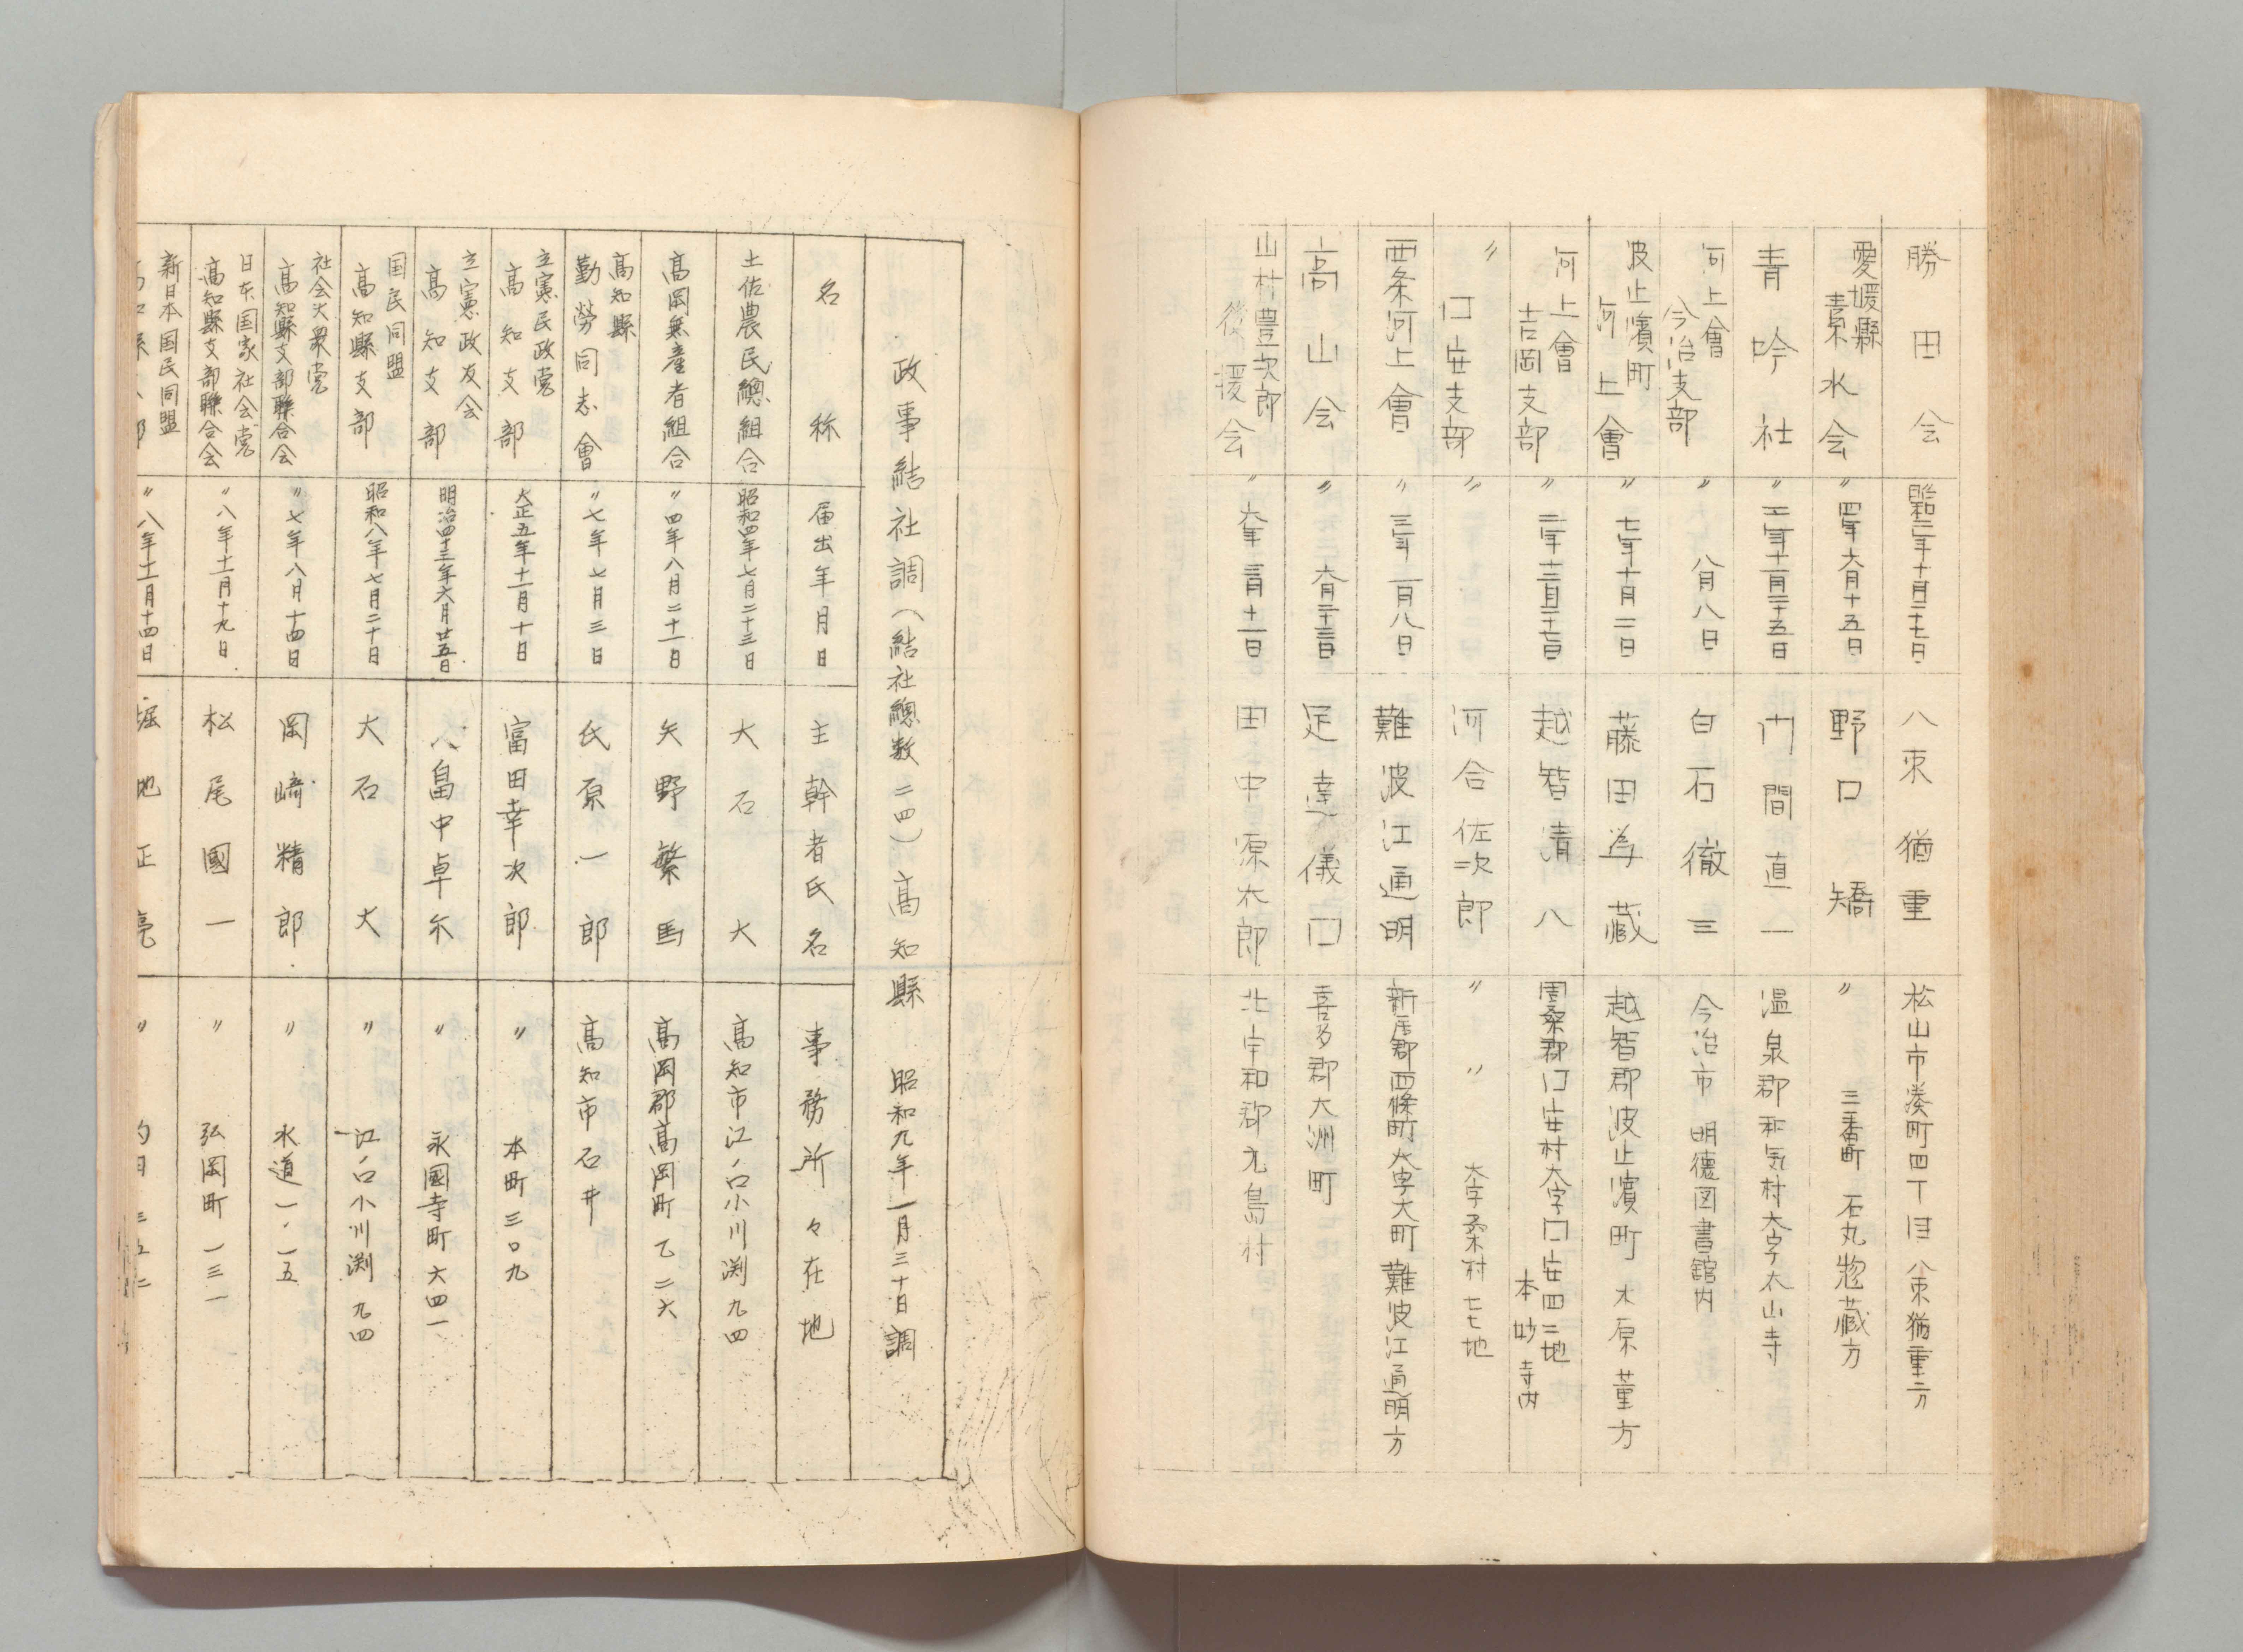 勝田会 昭和二年十月二十七日 八束猶重 松山市湊町四丁目八束猶重方
愛媛縣青水会 〃四年六月十五日 野口矯 〃三番町 石丸惣藏方
青吟社 〃二年十一月二十五日 門間直一 温泉郡和気村大字太山寺
河上會今治支部 〃 八月八日 白石徹三 今治市明德図書館内
波止濱町河上會 〃七年十月二日 藤田為藏 越智郡波止濱町 木原菫方
河上會吉岡支部 〃二年十二月二十七日 越智清八 周桑郡口安村大字口安四二地 本妙寺内
〃口安支部 〃 河合佐次郎 〃 〃 大字桑村七七地
西条河上會 〃三年一月八日 難波江通明 新居郡西條町大字大町 難波江通明方
高山会 〃 六月二十三日 足達儀口 喜多郡大洲町
山村豊次郎後援会 〃六年三月十一日 田中源太郎 北宇和郡九島村
政事結社調(結社總数二四)高知縣 昭和九年一月三十日調
名称 届出年月日 主幹者氏名 事務所々在地
土佐農民總組合 昭和四年七月二十三日 大石大 高知市江ノ口小川渕九四
高岡無産者組合 〃四年八月二十一日 矢野繁馬 高岡郡高岡町乙二六
高知縣勤勞同志會 〃七年七月三日 氏原一郎 高知市石井
立憲民政党高知支部 大正五年十一月十日 富田幸次郎 〃 本町三〇九
立憲政友会高知支部 明治四十三年六月廿五日 畠中卓尓 〃 永國寺町六四一
国民同盟高知縣支部 昭和八年七月二十日 大石大 〃 江ノ口小川渕九四
社会大衆党高知縣支部聯合会 〃七年八月十四日 岡崎精郎 〃 水道一、一五
日本国家社会党高知縣支部聯合会 〃八年十一月十九日 松尾國一 〃 弘岡町一三一
新日本国民同盟高知縣支部 〃八年十一月十四日 堀地正亮 〃